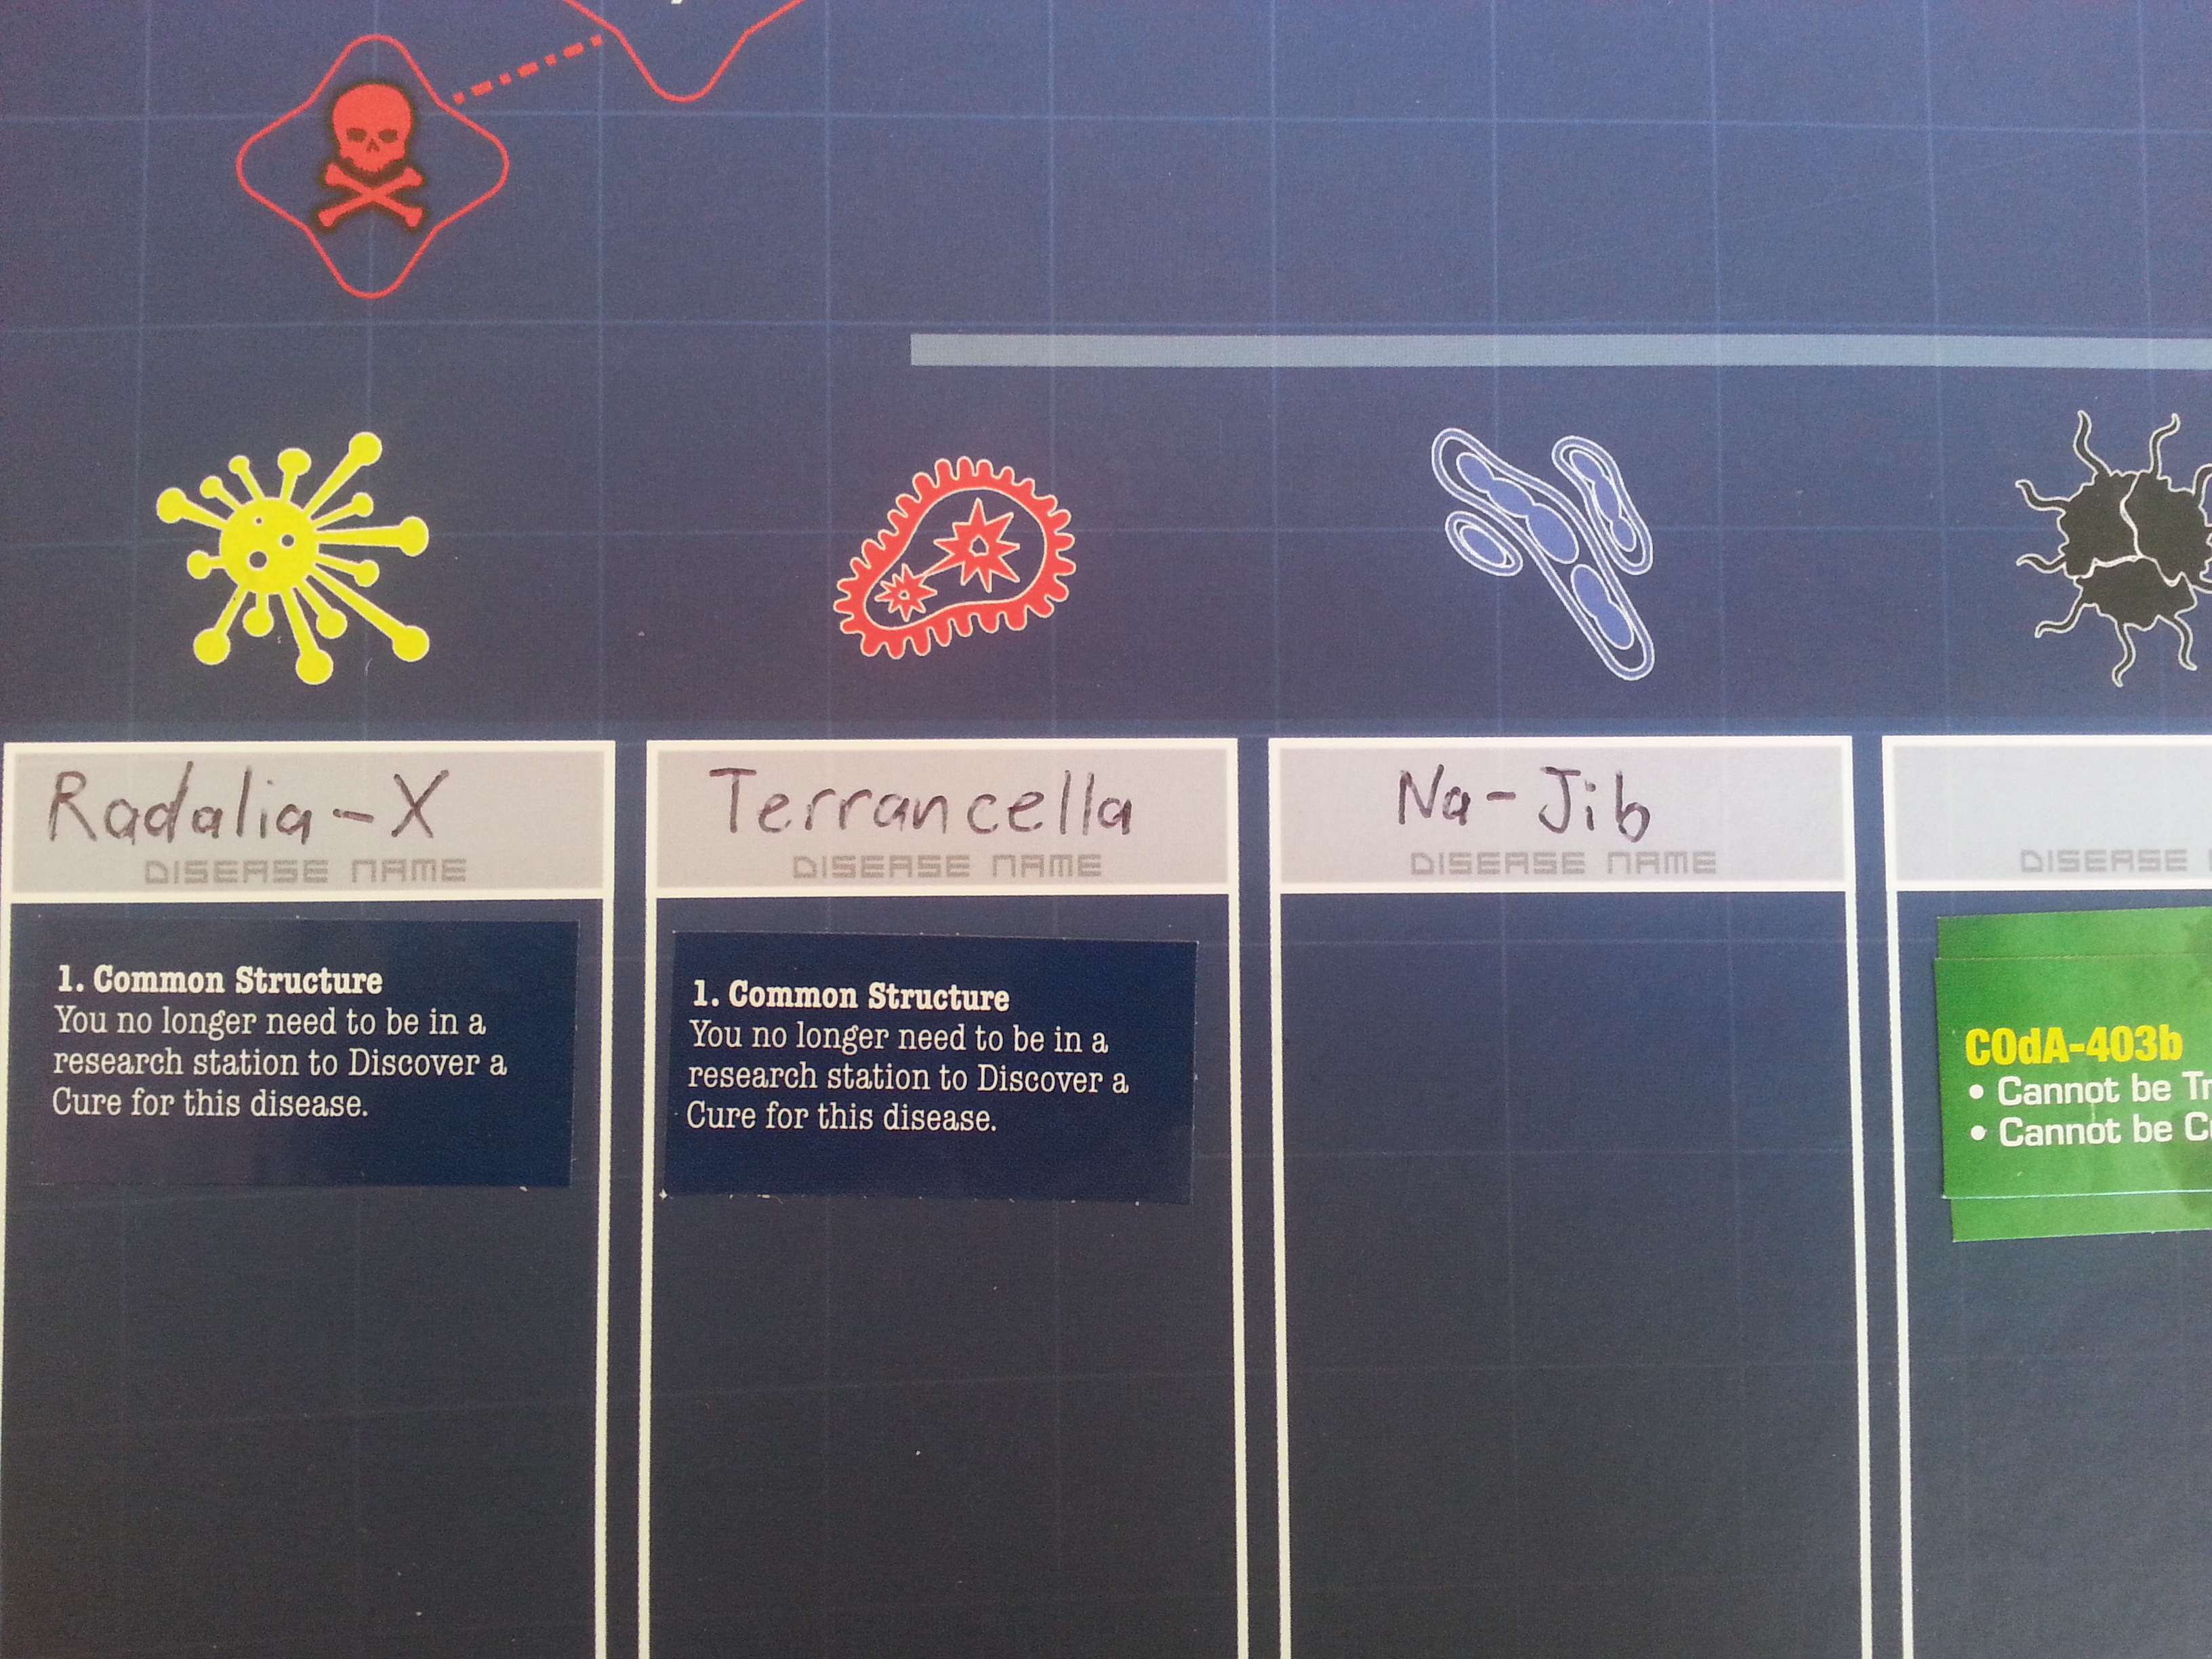 Radalia-X
DISEASE NAME
1. Common Structure
You no longer need to be in a
research station to Discover a
Cure for this disease.
Terrancella
DISEASE NAME
1. Common Structure
You no longer need to be in a
research station to Discover a
Cure for this disease.
Na-Jib
DISEASE NAME
DISEASE
COdA-403b
• Cannot be
• Cannot be